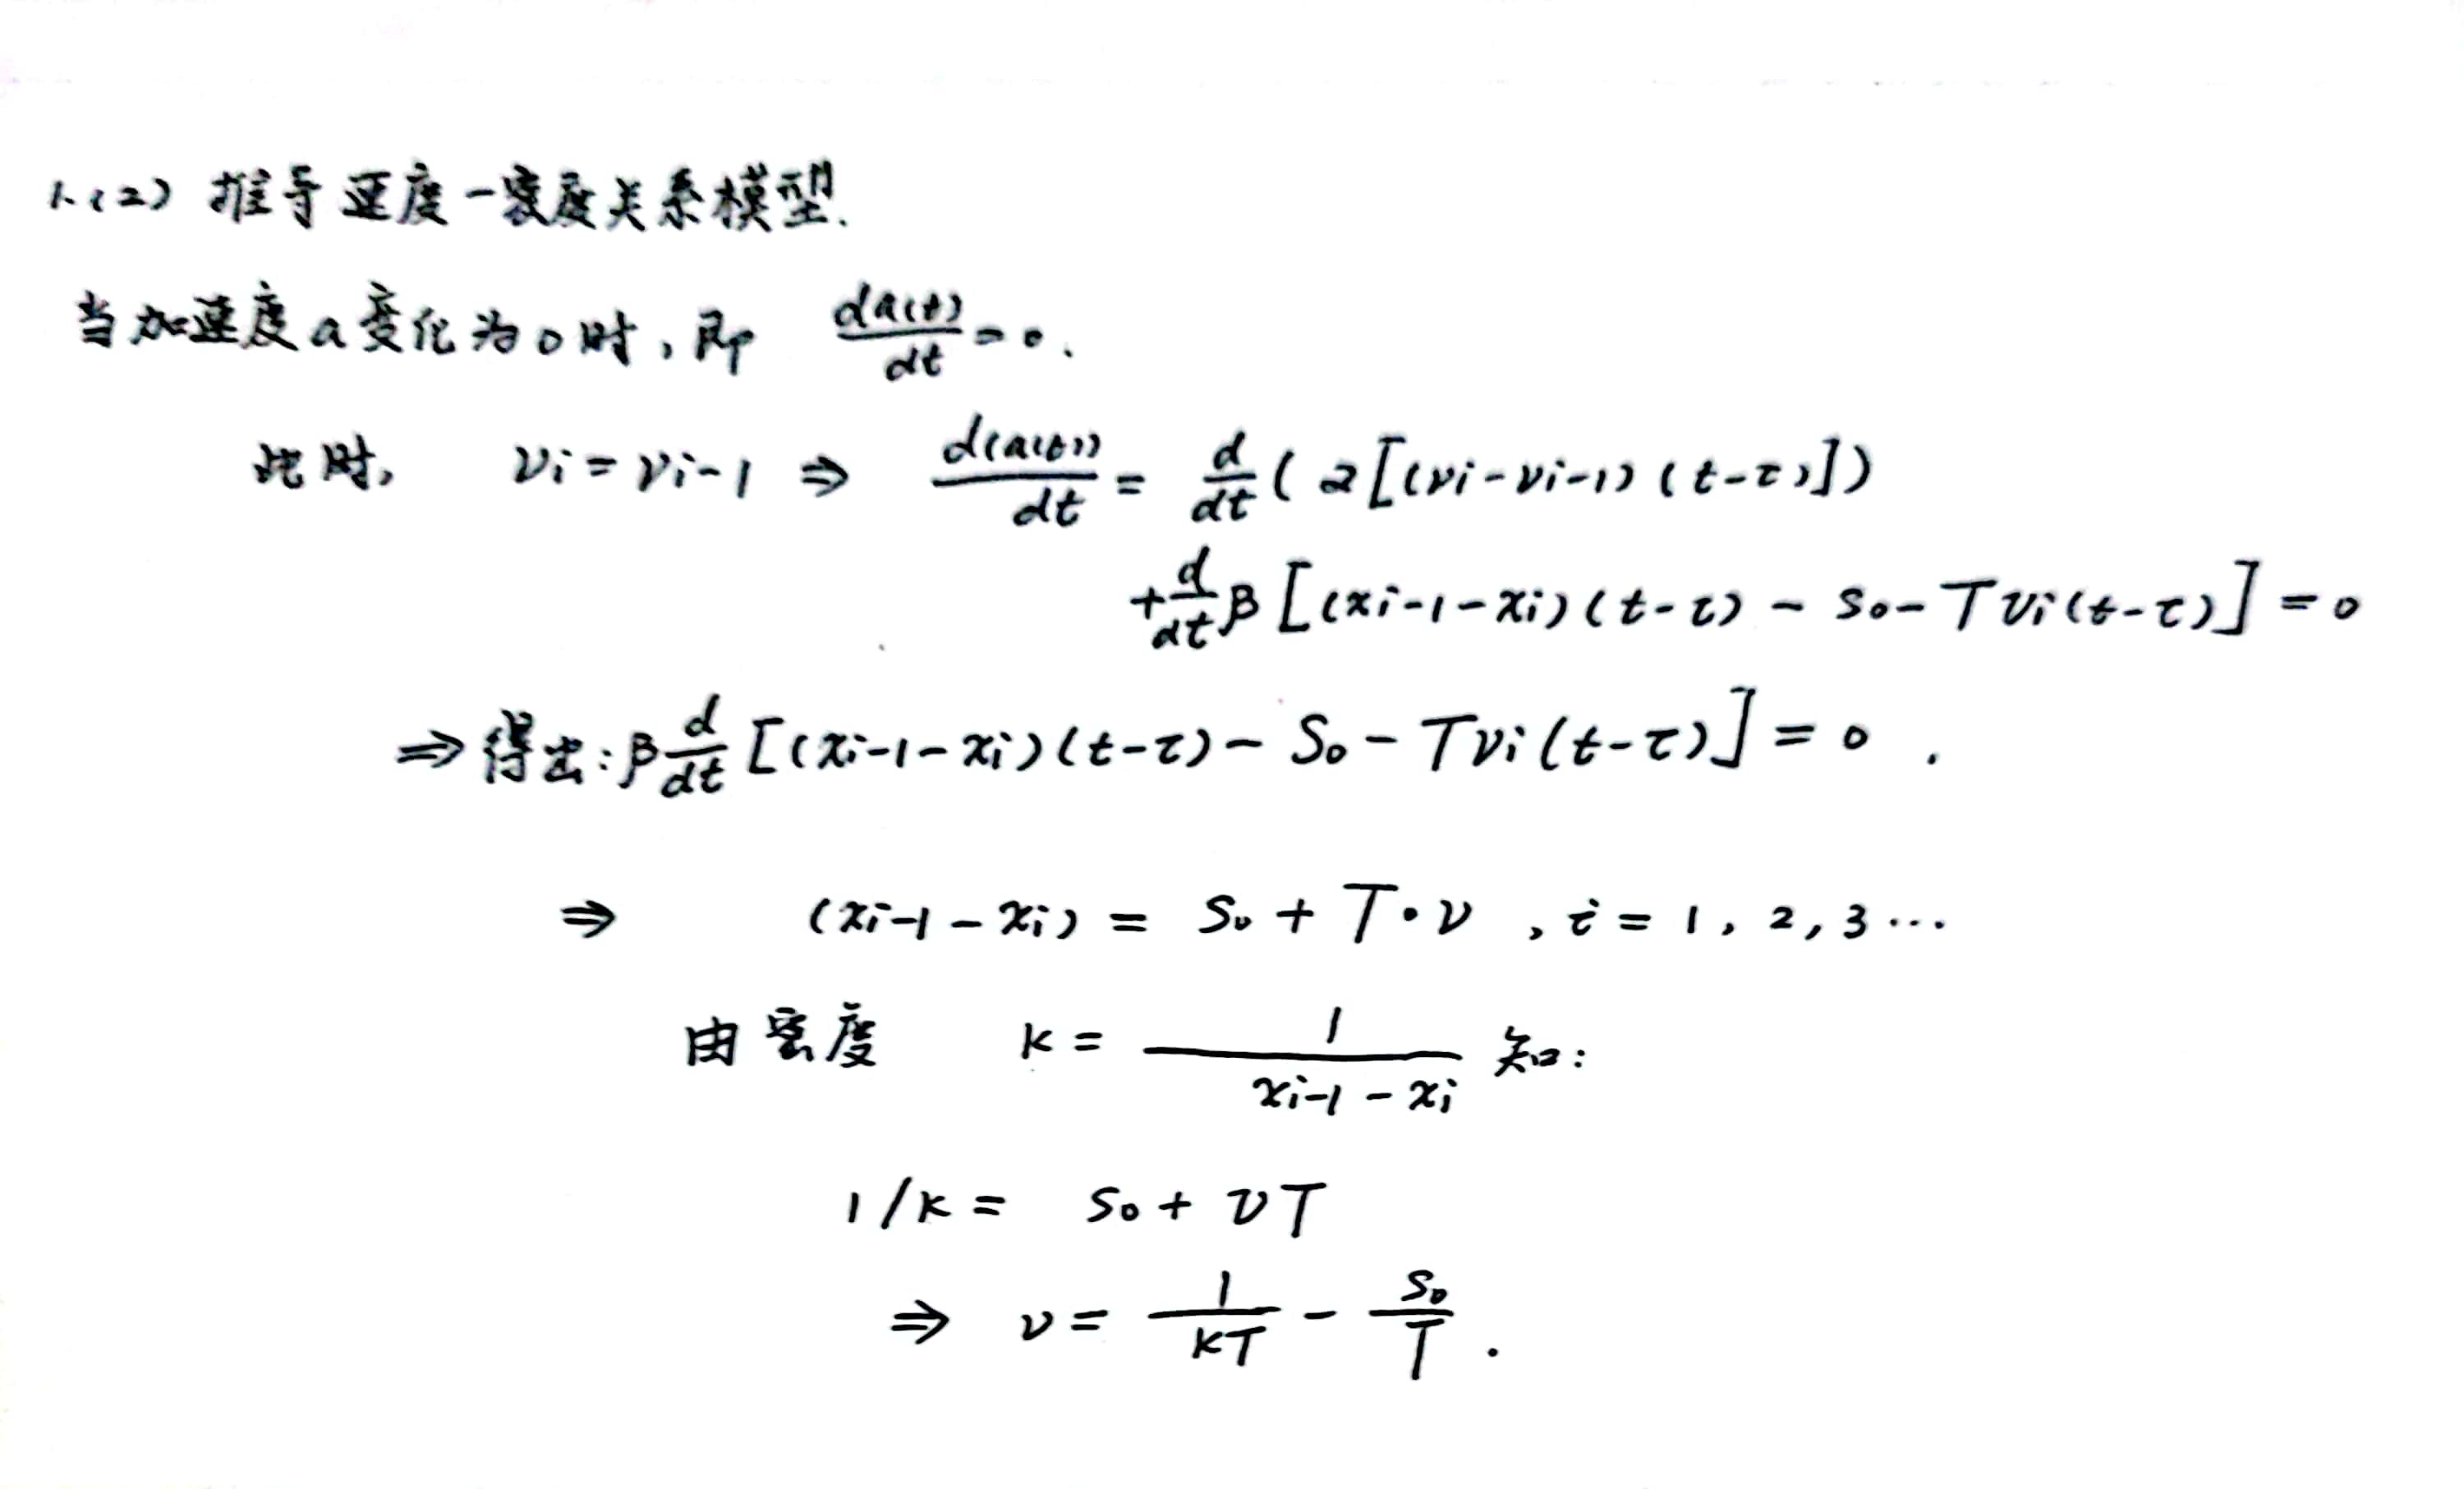 1.(2) 推导速度-密度关系模型.
当加速度a变化为0时,即 da(t)/dt = 0.
此时, vi = vi-1 ⇒ d(a(t))/dt = d/dt ( 2[(vi - vi-1)(t-τ)])
+ d/dt β [(xi-1 - xi)(t-τ) - s0 - T vi(t-τ)] = 0
⇒ 得出: β d/dt [(xi-1 - xi)(t-τ) - S0 - T vi(t-τ)] = 0 .
⇒ (xi-1 - xi) = S0 + T·v , i = 1, 2, 3 ...
由密度 k = 1/(xi-1 - xi) 知:
1/k = s0 + vT
⇒ v = 1/(kT) - s0/T .